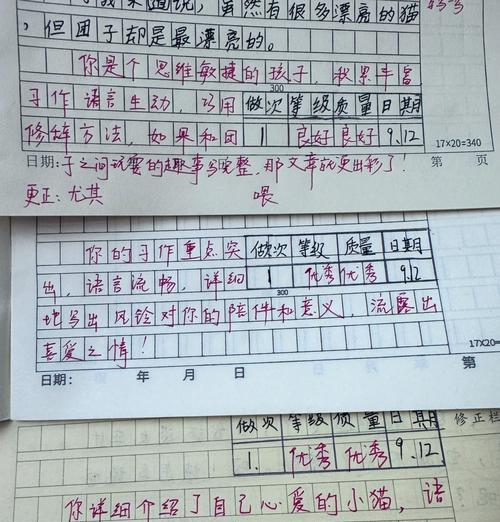 我来道说，虽然有很多漂亮的猫
，但团子却是最漂亮的。
你是个思维敏捷的孩子，我累丰富
300
习作语言生动，巧用 做次 等级 质量 日期
修辞方法，如果和团 1 良好 良好 9.12
17×20=340
日期：子之间玩耍的趣事写完整，那文章就更出彩了！ 第 页
更正：尤其 喂
你的习作重点突 做次 等级 质量 日期
出，语言流畅，详细 1 优秀 优秀 9.12
300
地写出风铃对你的陪伴和意义，流露出
喜爱之情！
17×20=
日期： 年 月 日 第
做次 等级 质量 日期 修正栏
1. 优秀 优秀 9.12
你详细介绍了自己心爱的小猫，语